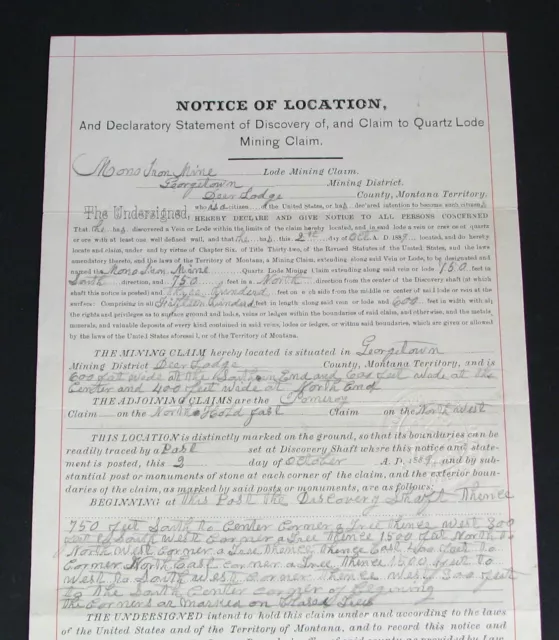 NOTICE OF LOCATION,
And Declaratory Statement of Discovery of, and Claim to Quartz Lode
Mining Claim.
Mono Iron Mine Lode Mining Claim.
Georgetown Mining District.
Deer Lodge County, Montana Territory.
The Undersigned, who is a citizen of the United States, or has declared intention to become such citizen
HEREBY DECLARE AND GIVE NOTICE TO ALL PERSONS CONCERNED
That he has discovered a Vein or Lode within the limits of the claim hereby located, and in said lode a vein or crevice of quartz
or ore with at least one well defined wall, and that he has, this 2nd day of Oct A. D. 1889 located, and do hereby
locate and claim, under and by virtue of Chapter Six, of Title Thirty two, of the Revised Statutes of the United States, and the laws
amendatory thereto, and the laws of the Territory of Montana, a Mining Claim, extending along said Vein or Lode, to be designated and
named the Mono Iron Mine Quartz Lode Mining Claim extending along said vein or lode 750 feet in
South direction, and 750 feet in a North direction from the center of the Discovery shaft (at which
shaft this notice is posted) and Three Hundred feet on each side from the middle or center of said lode or vein at the
surface: Comprising in all Fifteen Hundred feet in length along said vein or lode and 600 feet in width with all
the rights and privileges as to surface ground and lodes, veins or ledges within the boundaries of said claim, and otherwise, and the metals,
minerals, and valuable deposits of every kind contained in said veins, lodes or ledges, or within said boundaries, which are given or allowed
by the laws of the United States aforesaid, or of the Territory of Montana.
THE MINING CLAIM hereby located is situated in Georgetown
Mining District Deer Lodge County, Montana Territory, and is
600 feet wide at the South End and 600 feet wide at the
Center and 600 feet wide at North End
THE ADJOINING CLAIMS are the Pomeroy
Claim on the North Hold fast Claim on the North west
THIS LOCATION is distinctly marked on the ground, so that its boundaries can be
readily traced by a Post set at Discovery Shaft where this notice and state-
ment is posted, this 2 day of October A. D. 1889, and by sub-
stantial post or monuments of stone at each corner of the claim, and the exterior boun-
daries of the claim, as marked by said posts or monuments, are as follows:
BEGINNING at this Post the Discovery Shaft Thence
750 feet South to Center Corner a Tree thence west 300
feet to South West Corner a Tree thence 1500 feet North to
North West Corner a Tree thence Thence East 600 feet to
Corner North East Corner a Tree thence 1500 feet to
west to South west Corner thence west 300 feet
to the South Center corner of Begining
the Corners are marked on Blazed Tree
THE UNDERSIGNED intend to hold this claim under and according to the laws
of the United States and of the Territory of Montana, and to record this notice and